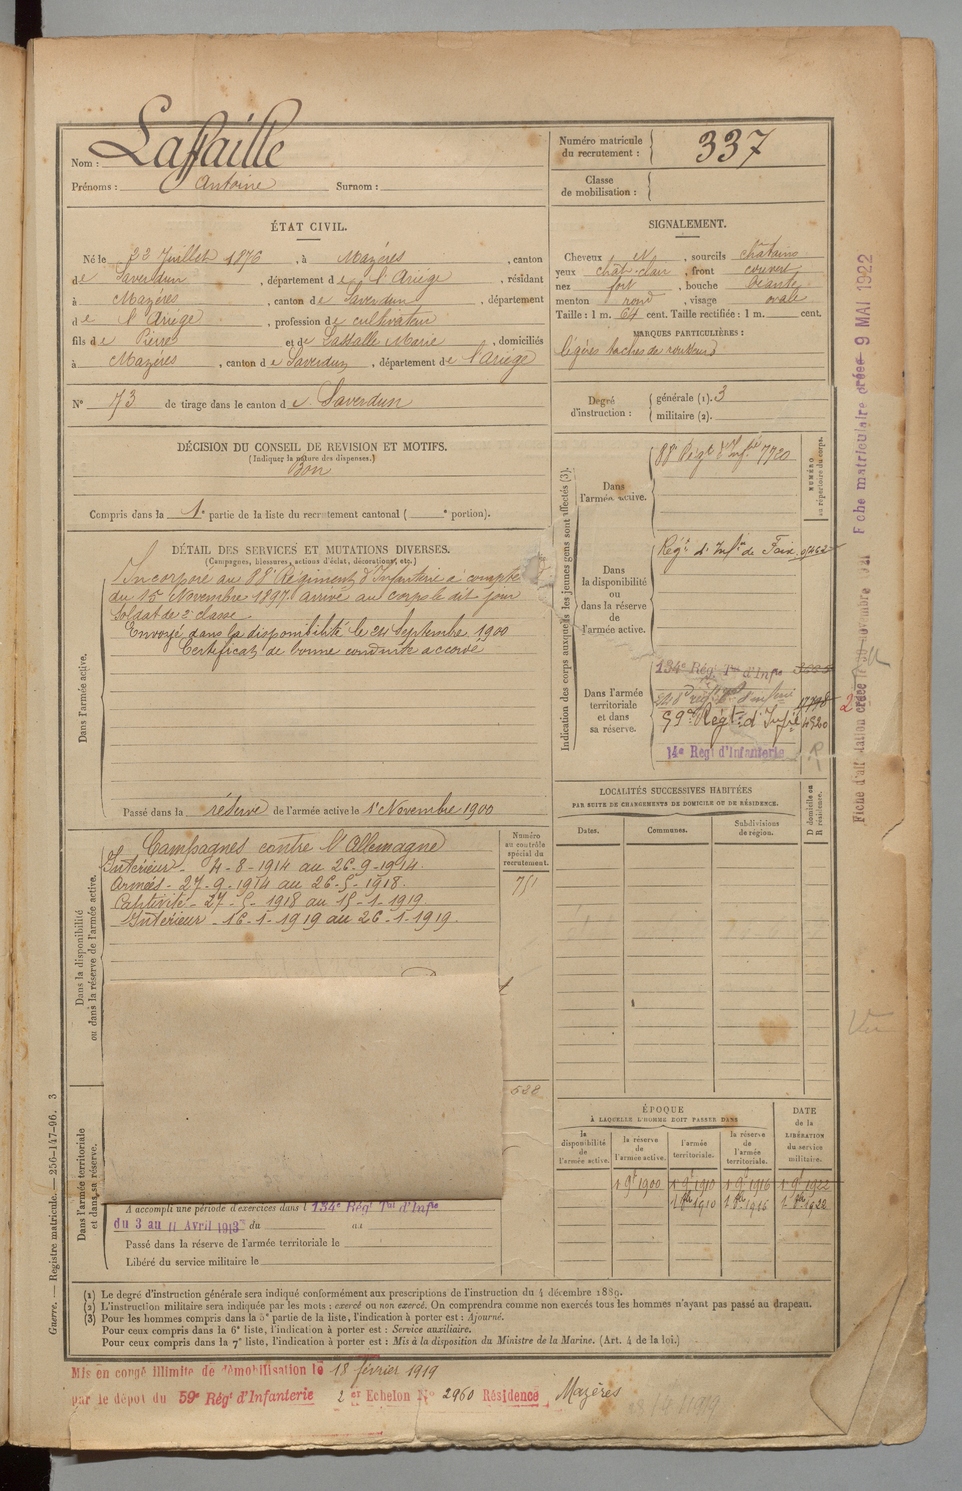 Nom : Laffaille
Prénoms : Antoine Surnom :
Numéro matricule du recrutement : 337
Classe de mobilisation :
ÉTAT CIVIL.
Né le 23 Juillet 1876, à Mazéres, canton
de Saverdun, département de l'Ariège, résidant
à Mazéres, canton de Saverdun, département
de l'Ariège, profession de cultivateur
fils de Pierre et de Lassalle Marie, domiciliés
à Mazéres, canton de Saverdun, département de l'Ariège
N° 73 de tirage dans le canton de Saverdun
SIGNALEMENT.
Cheveux N, sourcils châtains
yeux chât-clair, front couvert
nez fort, bouche béante
menton rond, visage ovale
Taille : 1 m. 64 cent. Taille rectifiée : 1 m. cent.
MARQUES PARTICULIÈRES :
légères taches de rousseurs
Degré d'instruction : générale (1). 3
militaire (2).
DÉCISION DU CONSEIL DE REVISION ET MOTIFS.
(Indiquer la nature des dispenses.)
Bon
Compris dans la 1e partie de la liste du recrutement cantonal ( e portion).
DÉTAIL DES SERVICES ET MUTATIONS DIVERSES.
(Campagnes, blessures, actions d'éclat, décorations, etc.)
Dans l'armée active.
Incorporé au 88e Régiment d'Infanterie à compter
du 15 Novembre 1897. arrivé au corps le dit jour
Soldat de 2e classe
Envoyé dans la disponibilité le 24 Septembre 1900
Certificat de bonne conduite accordé
Passé dans la réserve de l'armée active le 1er Novembre 1900
Dans la disponibilité ou dans la réserve de l'armée active.
Campagnes contre l'Allemagne
Intérieur - 4-8-1914 au 26-9-1914.
Armées - 27-9-1914 au 26-5-1918.
Captivité - 27-5-1918 au 15-1-1919.
Intérieur - 16-1-1919 au 26-1-1919.
Numéro au contrôle spécial du recrutement.
751
528
Dans l'armée territoriale et dans sa réserve.
A accompli une période d'exercices dans l 134e Régt Tal d'Infie
du 3 au 11 Avril 1913 du au
Passé dans la réserve de l'armée territoriale le
Libéré du service militaire le
Indication des corps auxquels les jeunes gens sont affectés (3).
NUMÉRO au répertoire du corps.
Dans l'armée active.
88e Régt d'Infie 7720
Dans la disponibilité ou dans la réserve de l'armée active.
Régt d'Infie de Foix
Dans l'armée territoriale et dans sa réserve.
134e Régt Tal d'Infie
59e Régt d'Infie 4520
14e Régt d'Infanterie
LOCALITÉS SUCCESSIVES HABITÉES
PAR SUITE DE CHANGEMENTS DE DOMICILE OU DE RÉSIDENCE.
Dates. Communes. Subdivisions de région. D domicile ou R résidence.
ÉPOQUE
À LAQUELLE L'HOMME DOIT PASSER DANS
la disponibilité de l'armée active. la réserve de l'armée active. l'armée territoriale. la réserve de l'armée territoriale.
DATE de la LIBÉRATION du service militaire.
1 9bre 1900 1 9bre 1910 1 9bre 1916 1 9bre 1922
1 8bre 1910 1 8bre 1916
(1) Le degré d'instruction générale sera indiqué conformément aux prescriptions de l'instruction du 4 décembre 1889.
(2) L'instruction militaire sera indiquée par les mots : exercé ou non exercé. On comprendra comme non exercés tous les hommes n'ayant pas passé au drapeau.
(3) Pour les hommes compris dans la 5e partie de la liste, l'indication à porter est : Ajourné.
Pour ceux compris dans la 6e liste, l'indication à porter est : Service auxiliaire.
Pour ceux compris dans la 7e liste, l'indication à porter est : Mis à la disposition du Ministre de la Marine. (Art. 4 de la loi.)
Mis en congé illimité de démobilisation le 18 février 1919
par le dépôt du 59e Régt d'Infanterie 2 er Echelon No 2960 Résidence Mazères
Guerre. — Registre matricule. — 256-147-96. 3
Fiche matriculaire créée 9 MAI 1922
Fiche d'affectation créée le 30 novembre
Vu